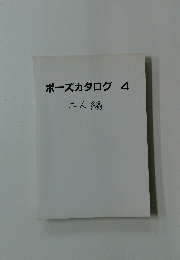 ポーズカタログ 4
二人編